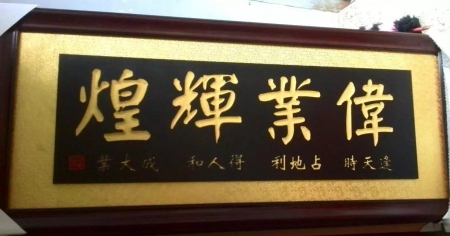 偉業輝煌
逢天時 占地利 得人和 成大業